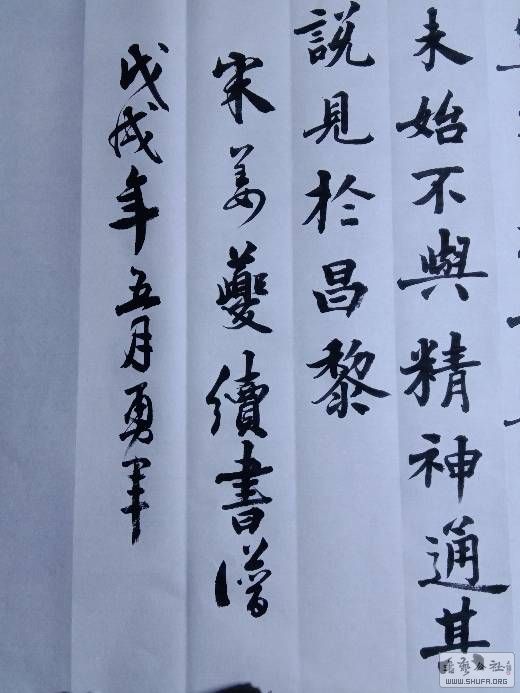 未始不與精神通其
說見於昌黎
宋姜夔續書譜
戊戌年五月勇軍
書藝公社
WWW.SHUFA.ORG